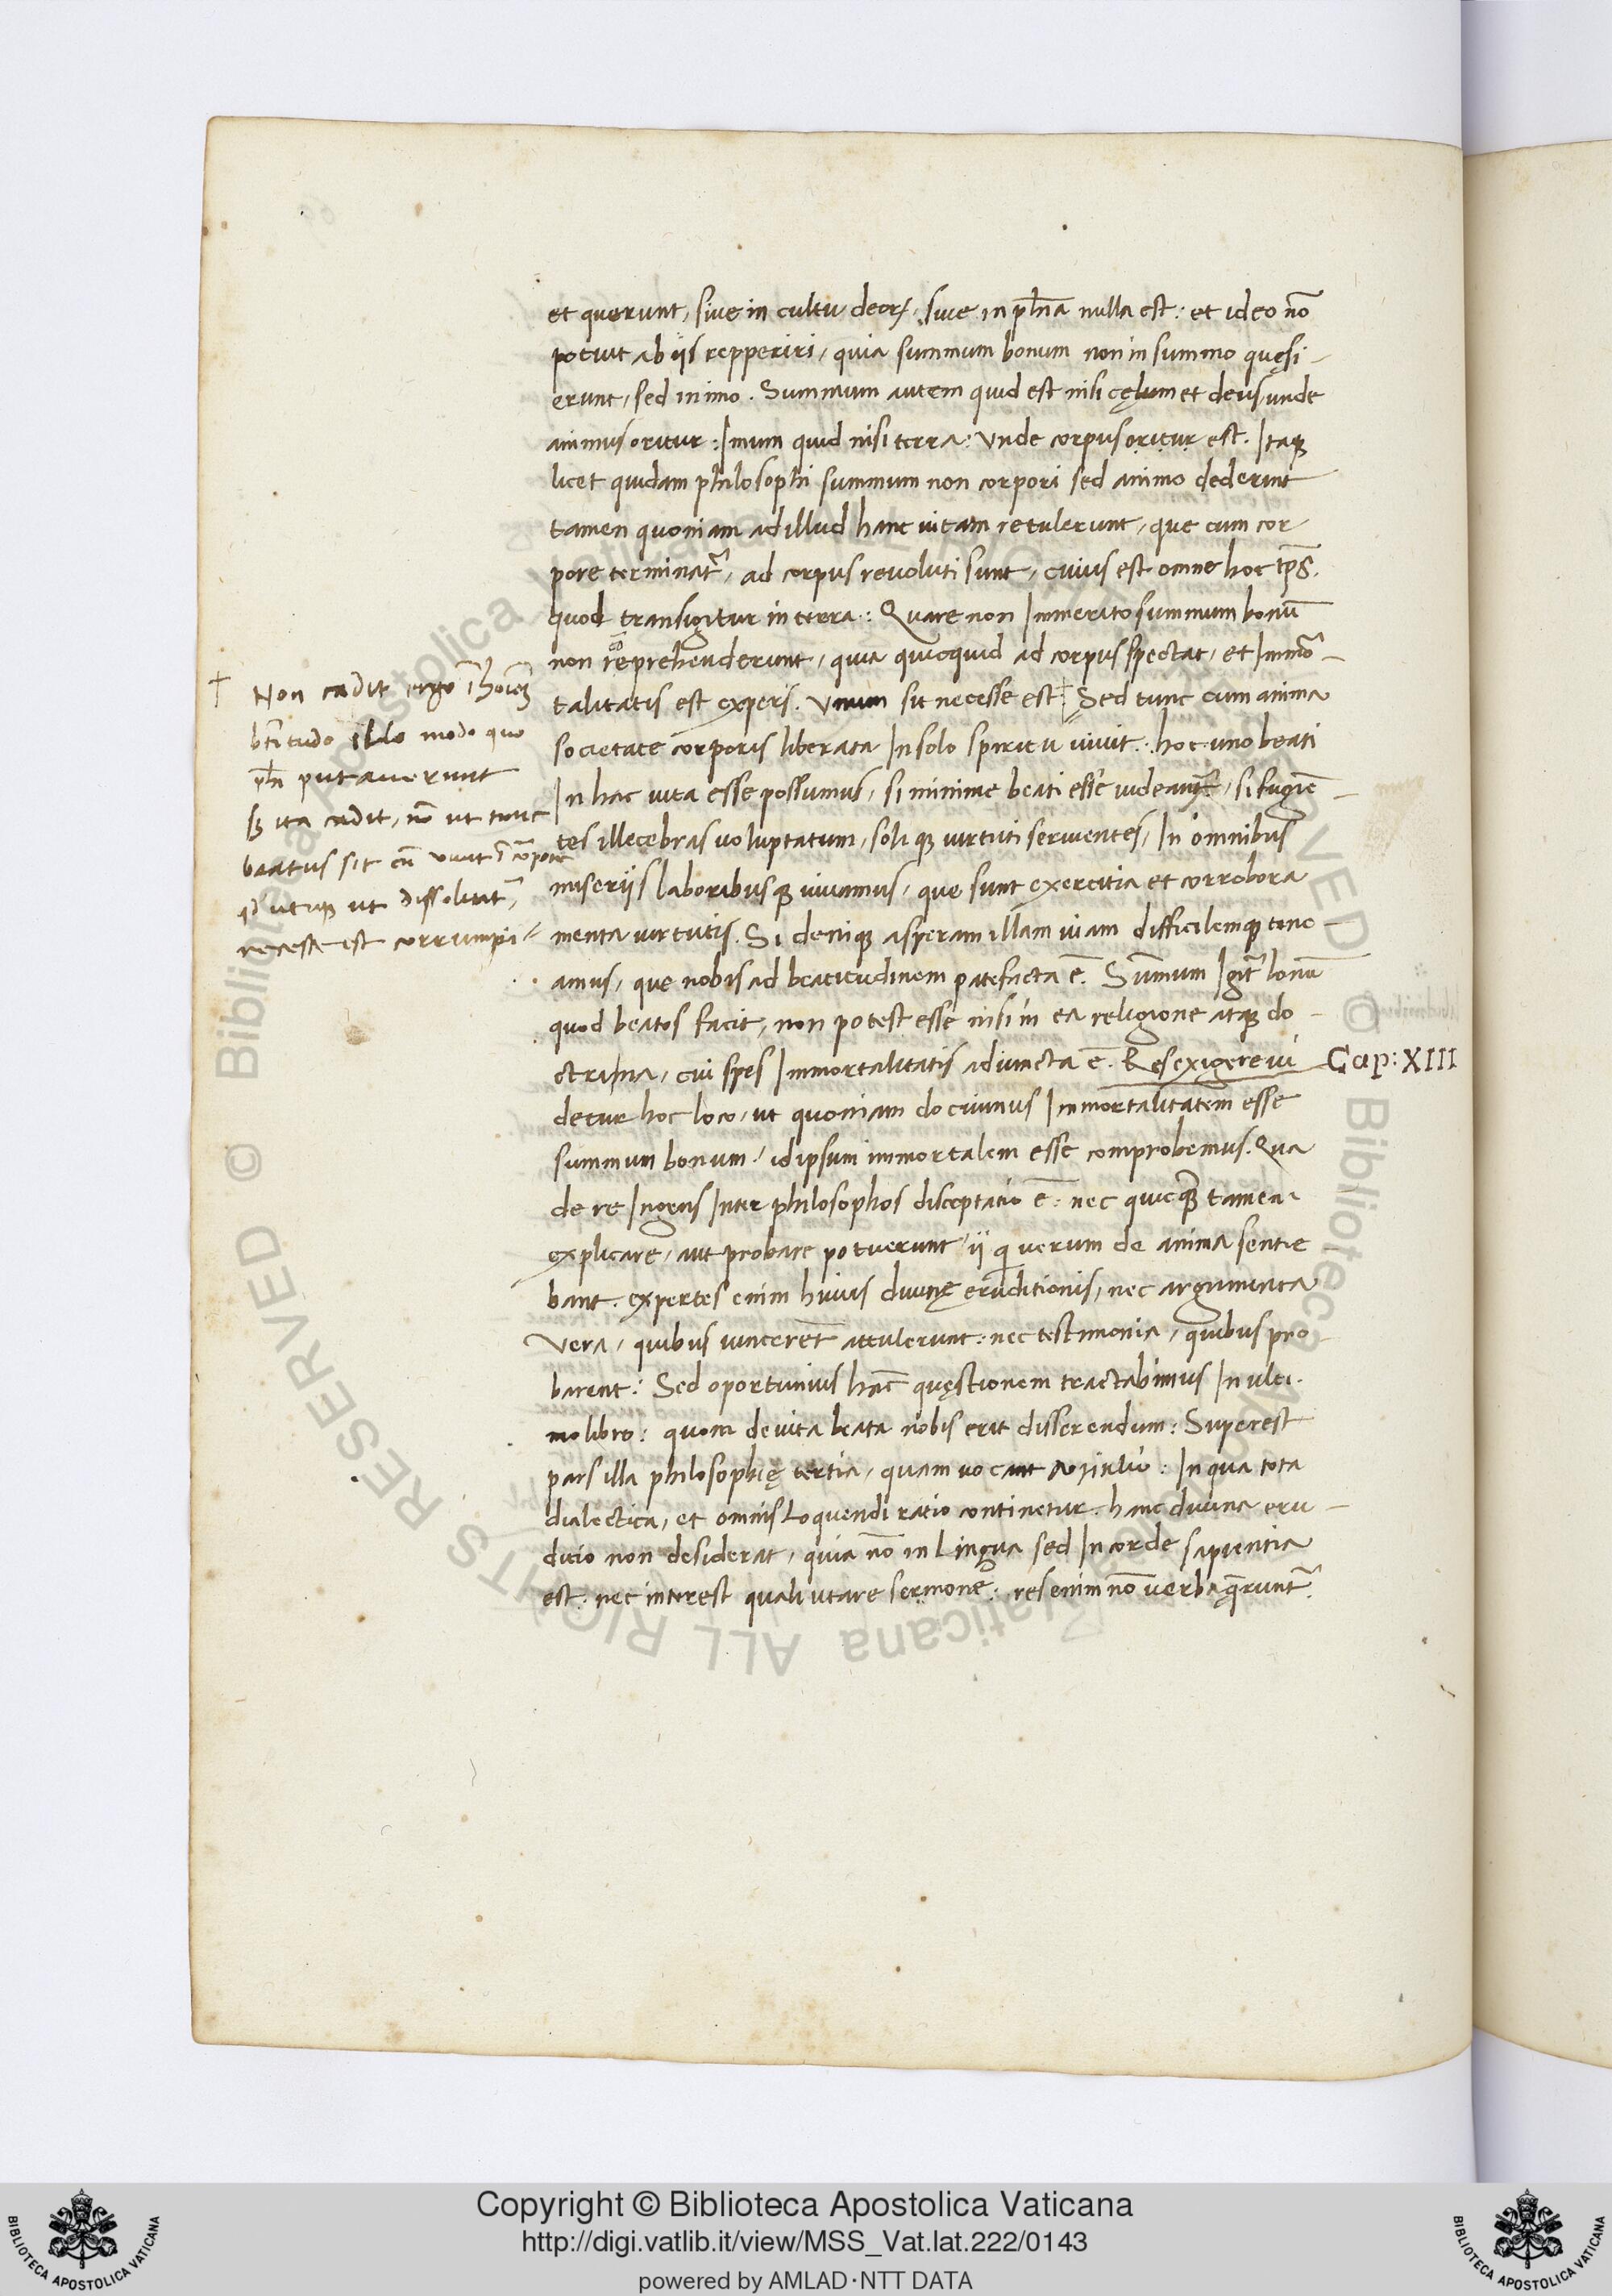 et querunt, siue in cultu deorꝝ, siue in ph̃na nulla est: et ideo nõ
potuit ab ijs repperiri, quia summum bonum non in summo quęsi-
erunt, sed in imo. Summum autem quid est nisi cęlum et deus, unde
animus oritur: Imum quid nisi terra: Vnde corpus oritur est. Itaqꝫ
licet quidam philosophi summum non corpori sed animo dederint
tamen quoniam ad illud hanc uitam retulerunt, que cum cor-
pore terminat᷑, ad corpus reuoluti sunt, cuius est omne hoc tp̃s.
quod transigitur in terra: Quare non Inmerito summum bonũ
non reprehenderunt, quia quicquid ad corpus spectat, et Immõ-
talitatis est expers. Vnum sit necesse est. Sed tunc cum anima
societate corporis liberata In solo spiritu uiuit. hoc uno beati
In hac uita esse possumus, si minime beati esse uideamur, si fugiẽ-
tes illecebras uoluptatum, soliqꝫ uirtuti seruientes, In omnibus
miserijs laboribusqꝫ uiuamus, que sunt exercitia et corrobora
menta uirtutis. Si deniqꝫ asperam illam uiam difficilemqꝫ tene-
amus, que nobis ad beatitudinem patefacta ẽ. Sũmum Igit᷑ bonũ
quod beatos facit, non potest esse nisi in ea religione atqꝫ do-
ctrina, cui spes Inmortalitatis adiuncta ẽ. Res exigere ui
detur hoc loco, ut quoniam docuimus Inmortalitatem esse
summum bonum, id ipsum immortalem esse comprobemus. Qua
de re Ingens Inter philosophos disceptatio ẽ: nec quicqꝫ tamen
explicare, aut probare potuerunt, ij qui uerum de anima sentie
bant. expertes enim huius diuinę eruditionis, nec argumenta
Vera, quibus uincerẽt attulerunt: nec testimonia, quibus pro
barent: Sed oportunius hãc quęstionem tractabimus In ulti-
mo libro: quom de uita beata nobis erit disserendum: Superest
pars illa philosophię tertia, quam uocant λογικήν: In qua tota
dialectica, et omnis Loquendi ratio continetur. hanc diuina eru-
ditio non desiderat, quia nõ in Lingua sed In corde sapientia
est: nec interest quali utare sermone: res enim nõ uerba q̃runt᷑.
† Non cadit ergo ĩ hoĩeꝫ
btĩtudo illo modo quo
ph̃i putauerunt
sꝫ ita cadit, nõ ut tunc
beatus sit cũ uiuit ĩ corpore
qd̃ utiqꝫ ut dissoluat᷑,
necesse est corrumpi
Cap: XIII
Copyright © Biblioteca Apostolica Vaticana
http://digi.vatlib.it/view/MSS_Vat.lat.222/0143
powered by AMLAD·NTT DATA
BIBLIOTECA APOSTOLICA VATICANA
BIBLIOTECA APOSTOLICA VATICANA
© Biblioteca Apostolica Vaticana ALL RIGHTS RESERVED
© Biblioteca Apostolica Vaticana ALL RIGHTS RESERVED